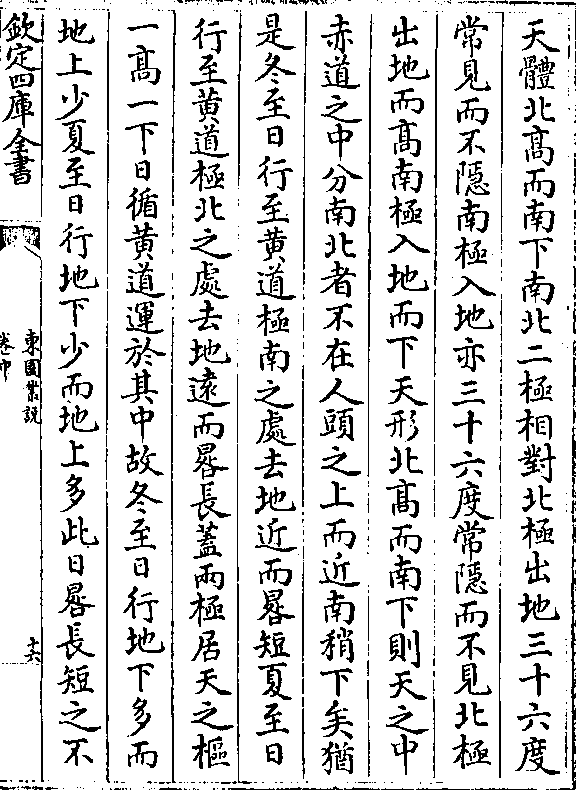 天體北髙而南下南北二極相對北極出地三十六度
常見而不隠南極入地亦三十六度常隠而不見北極
出地而髙南極入地而下天形北髙而南下則天之中
赤道之中分南北者不在人頭之上而近南稍下矣猶
是冬至日行至黄道極南之處去地近而晷短夏至日
行至黄道極北之處去地逺而晷長蓋兩極居天之樞
一髙一下日循黄道運於其中故冬至日行地下多而
地上少夏至日行地下少而地上多此日晷長短之不
欽定四庫全書
東園叢説
卷中
十六